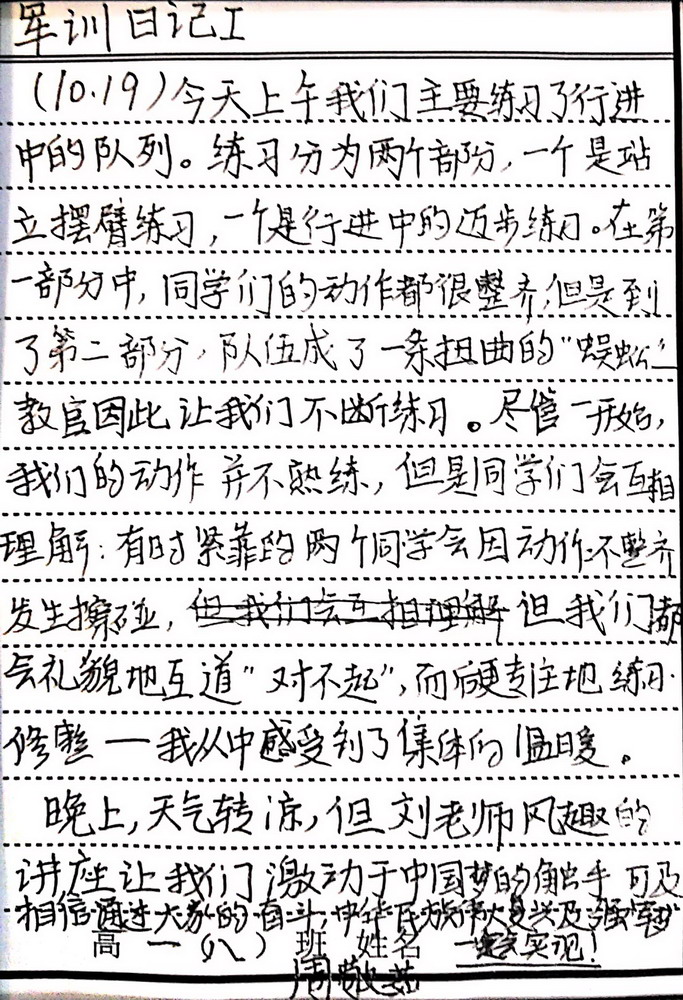 军训日记I
(10.19)今天上午我们主要练习了行进
中的队列。练习分为两个部分,一个是站
立摆臂练习,一个是行进中的迈步练习。在第
一部分中,同学们的动作都很整齐,但是到
了第二部分,队伍成了一条扭曲的“蜈蚣”
教官因此让我们不断练习。尽管一开始,
我们的动作并不熟练,但是同学们会互相
理解:有时紧靠的两个同学会因动作不整齐
发生擦碰,但我们会互相理解但我们都
会礼貌地互道“对不起”,而后更专注地练习
修整——我从中感受到了集体的温暖。
晚上,天气转凉,但刘老师风趣的
讲座让我们激动于中国梦的触手可及
相信通过大家的奋斗,中华民族伟大复兴及强军梦
高一(八)班 姓名 一定实现!
周敬茹